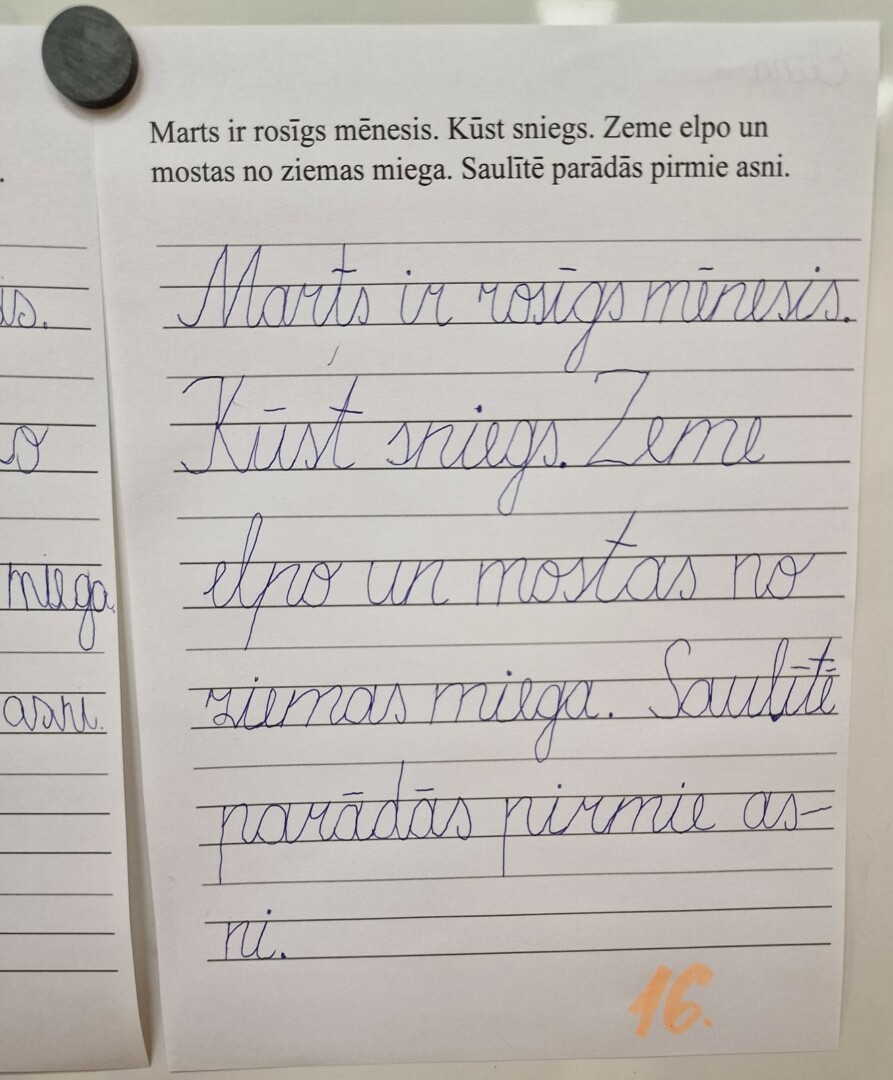 Marts ir rosīgs mēnesis. Kūst sniegs. Zeme elpo un
mostas no ziemas miega. Saulītē parādās pirmie asni.
Marts ir rosīgs mēnesis.
Kūst sniegs. Zeme
elpo un mostas no
ziemas miega. Saulītē
parādās pirmie as-
ni.
16.
miega.
asni.